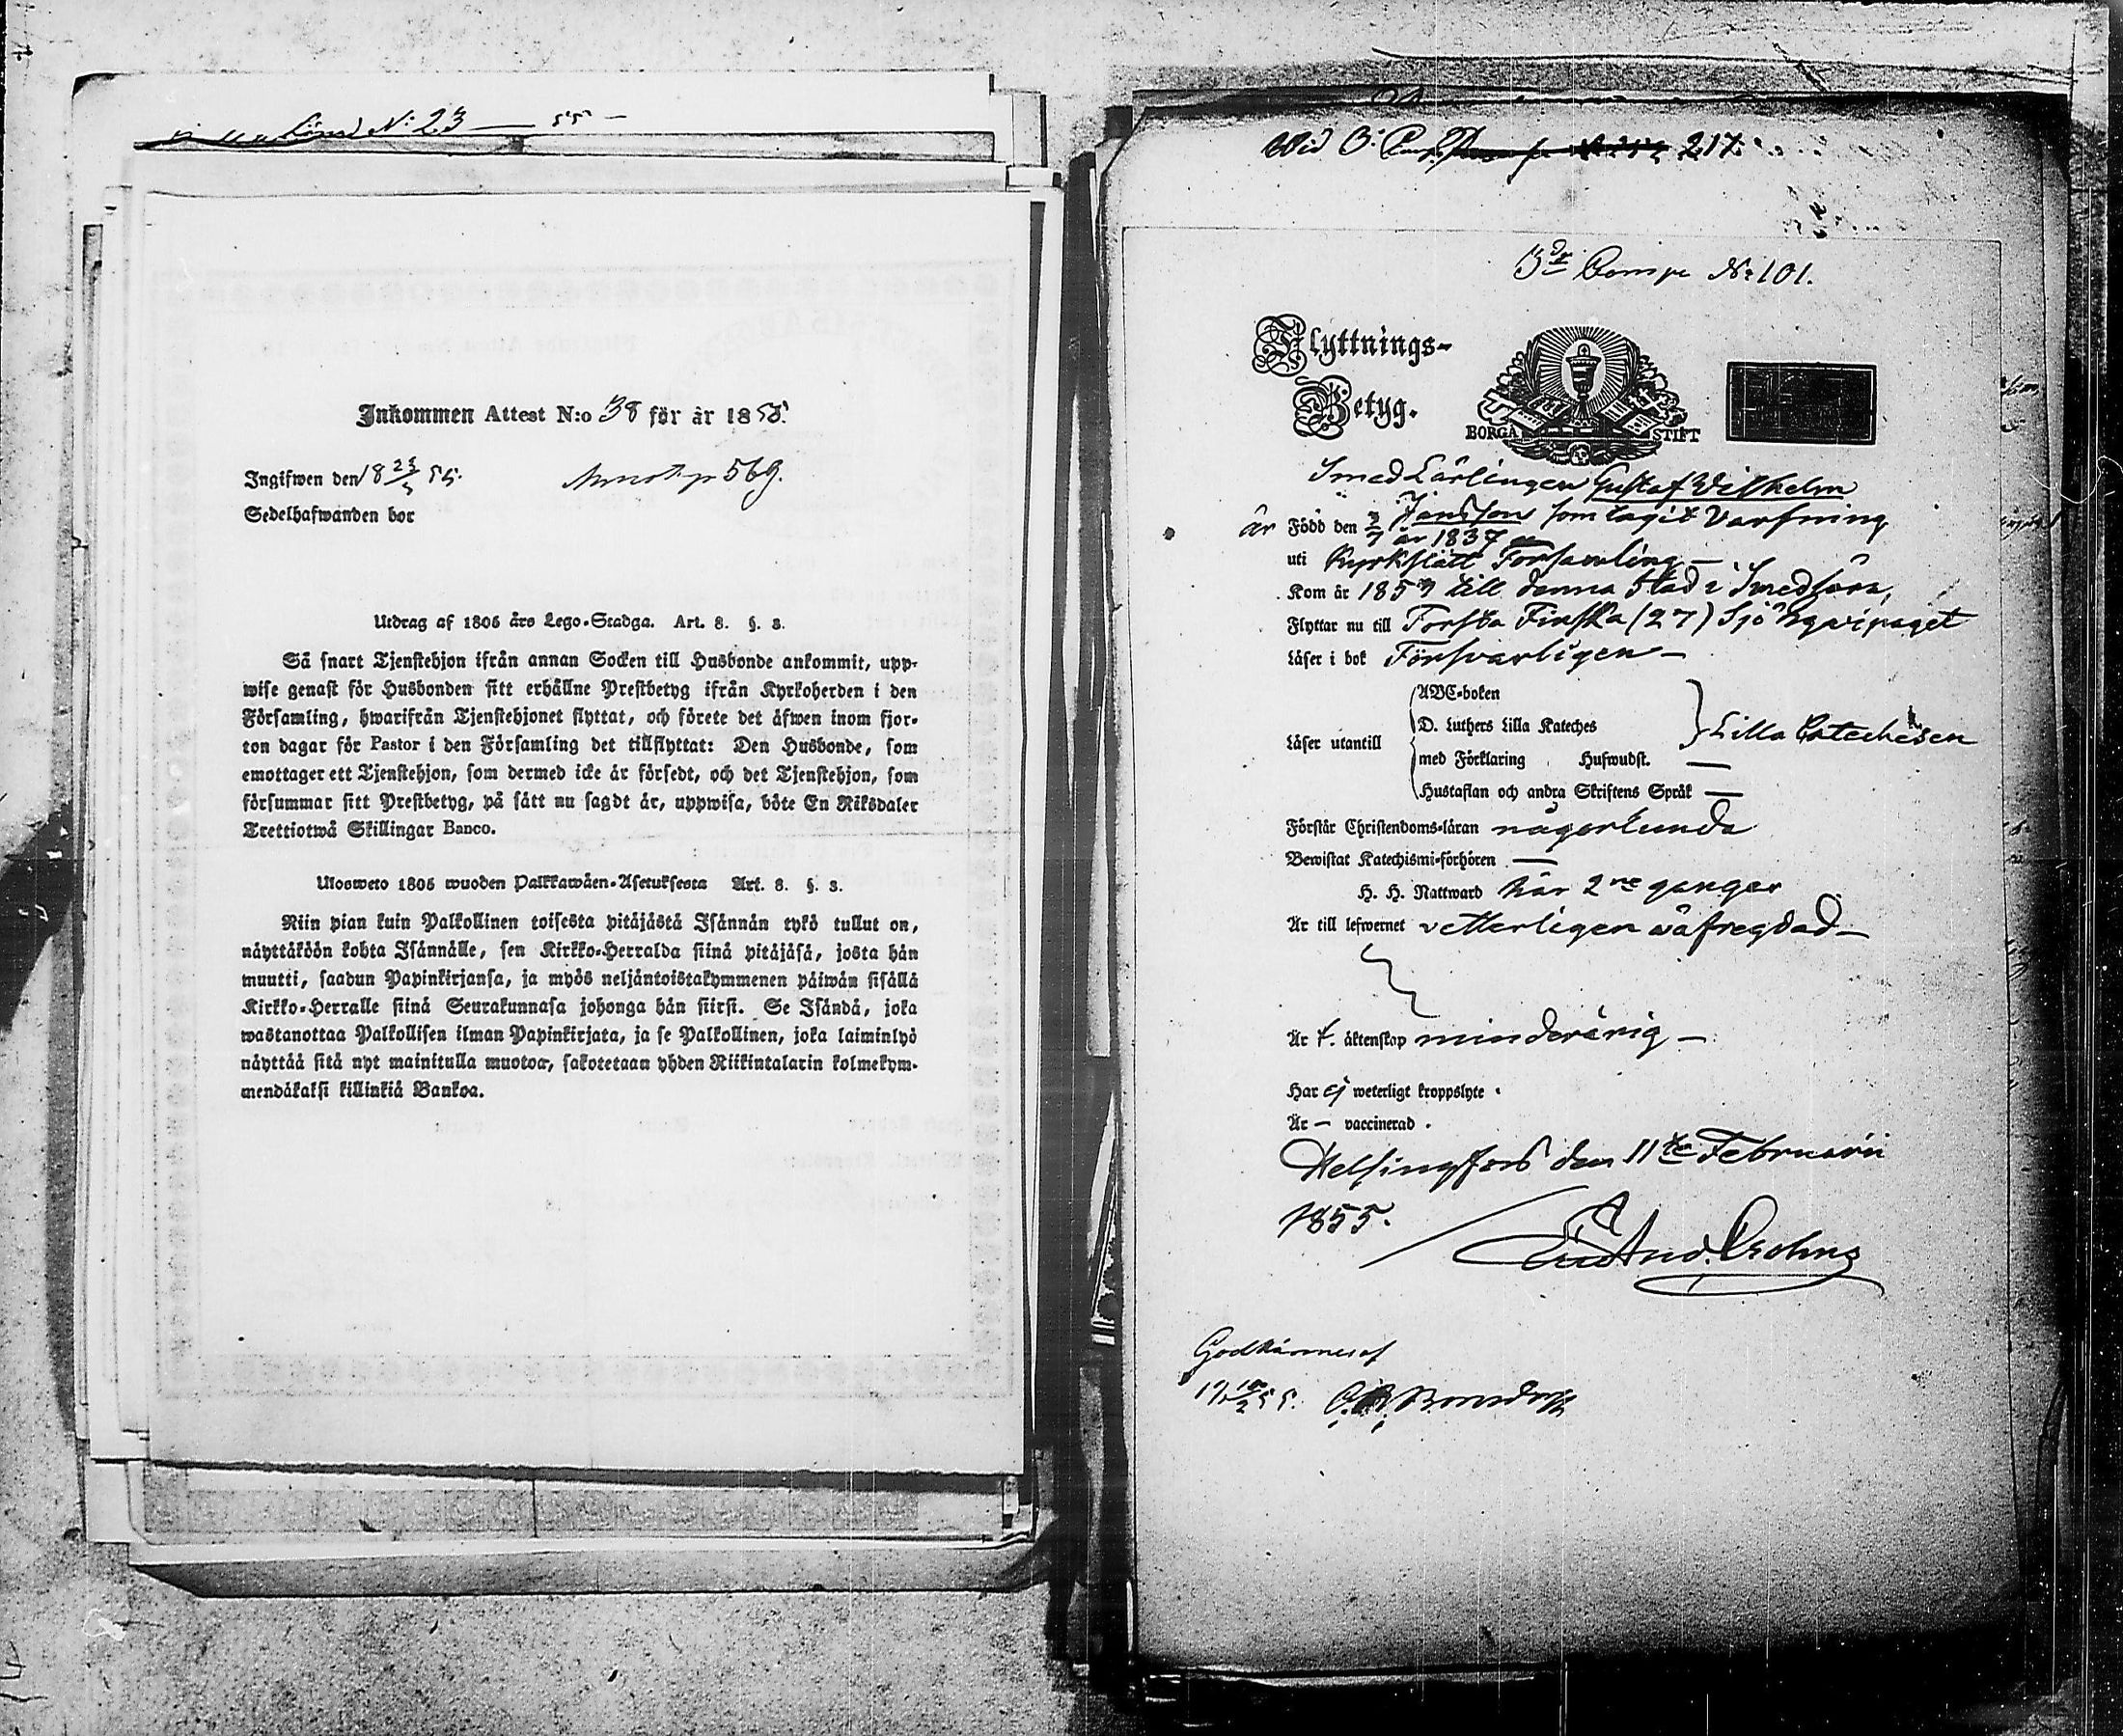 N: 23 — 55 —
Inkommen Attest N:o 38 för år 1855.
Ingifwen den 18 23/5 55. 569.
Sedelhafwanden bor
Utdrag af 1805 års Lego-Stadga. Art. 8. §. 3.
Så snart Tjenstehjon ifrån annan Socken till Husbonde ankommit, upp-
wise genast för Husbonden sitt erhållne Prestbetyg ifrån Kyrkoherden i den
Församling, hwarifrån Tjenstehjonet flyttat, och förete det äfwen inom fjor-
ton dagar för Pastor i den Församling det tillflyttat: Den Husbonde, som
emottager ett Tjenstehjon, som dermed icke är försedt, och det Tjenstehjon, som
försummar sitt Prestbetyg, på sätt nu sagdt är, uppwisa, böte En Riksdaler
Trettiotwå Skillingar Banco.
Ulosweto 1805 wuoden Palkkawäen-Asetuksesta Art. 8. §. 3.
Niin pian kuin Palkollinen toisesta pitäjästä Isännän tykö tullut on,
näyttäköön kohta Isännälle, sen Kirkko-Herralda siinä pitäjäsä, josta hän
muutti, saadun Papinkirjansa, ja myös neljäntoistakymmenen päiwän sisällä
Kirkko-Herralle siinä Seurakunnasa johonga hän siirsi. Se Isändä, joka
wastanottaa Palkollisen ilman Papinkirjata, ja se Palkollinen, joka laiminlyö
näyttää sitä nyt mainitulla muotoa, sakotetaan yhden Riikintalarin kolmekym-
mendäkaksi killinkiä Bankoa.
Wid 217.
3de Comp. N: 101.
Flyttnings-
Betyg.
BORGÅ STIFT
Smedlärlingen Gustaf Wilhelm
Jansson som tagit Varfning
är Född den 3/7 år 1837
uti Kyrkslätt Församling —
Kom år 1853 till denna Stad i Smedlära,
Flyttar nu till Första Finska (27) Sjö Eqvipaget
Läser i bok Försvarligen —
ABC-boken
D. Luthers Lilla Kateches
Läser utantill Lilla Catechesen
med Förklaring Hufwudst. —
Hustaflan och andra Skriftens Språk —
Förstår Christendoms-läran någorlunda
Bewistat Katechismi-förhören —
H. H. Nattward här 2ne gånger
Är till lefwernet vetterligen oäfregdad —
Är t. äktenskap minderårig —
Har ej weterligt kroppslyte .
Är — vaccinerad .
Helsingfors den 11te Februarii
1855.
Godkännes af